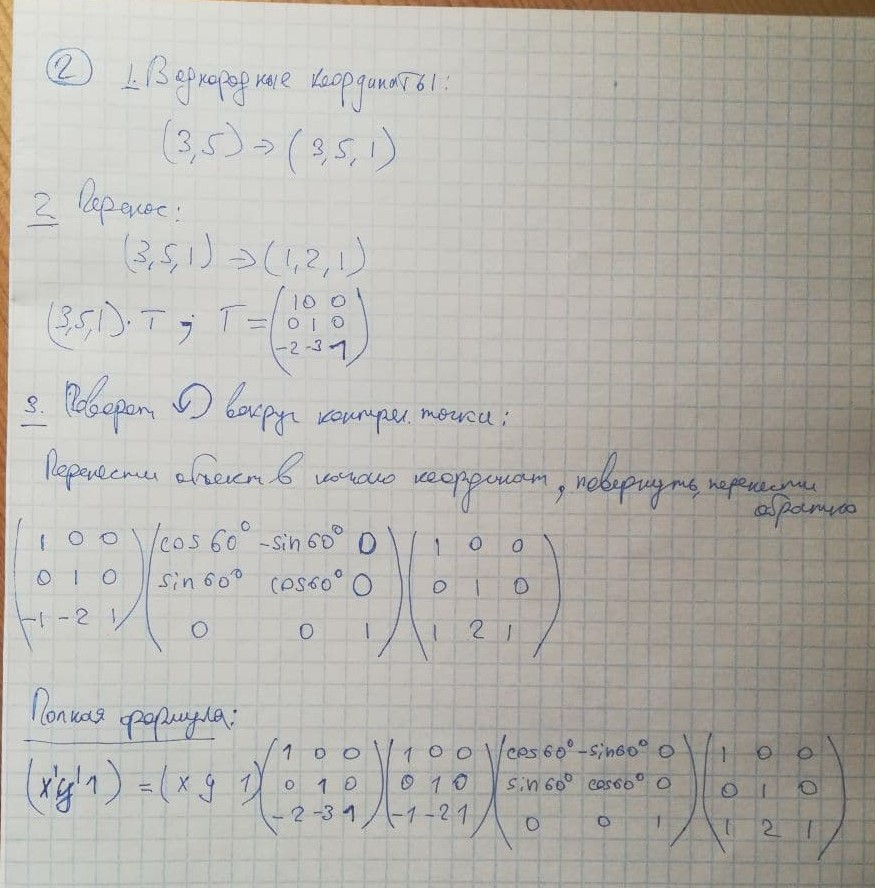 2 1. В однородные координаты:
(3,5) → (3,5,1)
2 Перенос:
(3,5,1) → (1,2,1)
(3,5,1)·T ; T = (1 0 0
0 1 0
-2 -3 1)
3. Поворот ↻ вокруг контрел. точки:
Перенести объект в начало координат, повернуть, перенести
обратно
(1 0 0) (cos 60° -sin 60° 0) (1 0 0)
(0 1 0) (sin 60° cos 60° 0) (0 1 0)
(-1 -2 1) (0 0 1) (1 2 1)
Полная формула:
(x' y' 1) = (x y 1) (1 0 0) (1 0 0) (cos 60° -sin 60° 0) (1 0 0)
(0 1 0) (0 1 0) (sin 60° cos 60° 0) (0 1 0)
(-2 -3 1) (-1 -2 1) (0 0 1) (1 2 1)